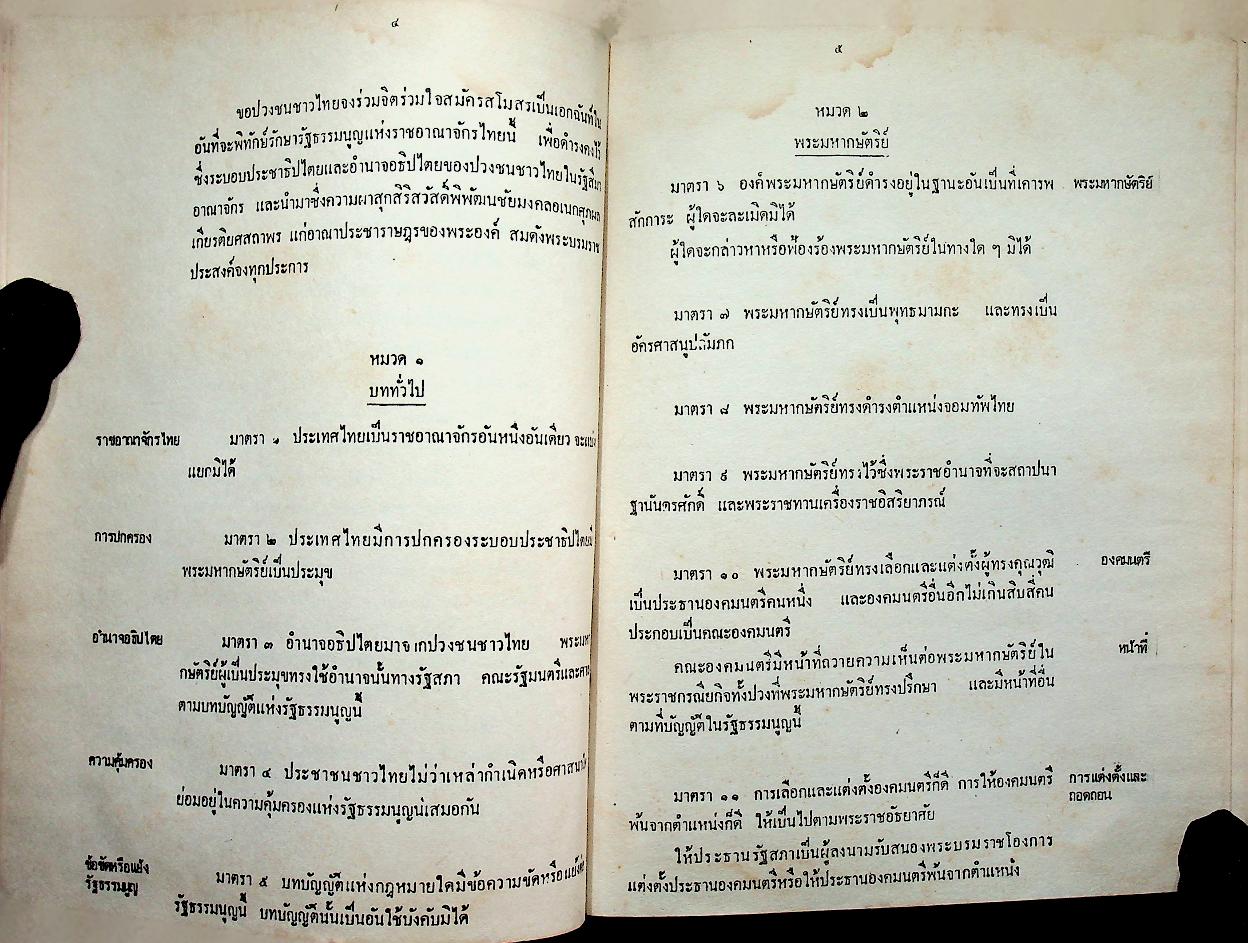 ๔
ขอปวงชนชาวไทยจงร่วมจิตร่วมใจสมัครสโมสรเป็นเอกฉันท์ใน
อันที่จะพิทักษ์รักษารัฐธรรมนูญแห่งราชอาณาจักรไทยนี้ เพื่อดำรงคงไว้
ซึ่งระบอบประชาธิปไตยและอำนาจอธิปไตยของปวงชนชาวไทยในรัฐสีมา
อาณาจักร และนำมาซึ่งความผาสุกสิริสวัสดิ์พิพัฒนชัยมงคลอเนกศุภผล
เกียรติยศสถาพร แก่อาณาประชาราษฎรของพระองค์ สมดังพระบรมราช
ประสงค์จงทุกประการ
หมวด ๑
บททั่วไป
ราชอาณาจักรไทย มาตรา ๑ ประเทศไทยเป็นราชอาณาจักรอันหนึ่งอันเดียว จะแบ่ง
แยกมิได้
การปกครอง มาตรา ๒ ประเทศไทยมีการปกครองระบอบประชาธิปไตยมี
พระมหากษัตริย์เป็นประมุข
อำนาจอธิปไตย มาตรา ๓ อำนาจอธิปไตยมาจากปวงชนชาวไทย พระมหา
กษัตริย์ผู้เป็นประมุขทรงใช้อำนาจนั้นทางรัฐสภา คณะรัฐมนตรีและศาล
ตามบทบัญญัติแห่งรัฐธรรมนูญนี้
ความคุ้มครอง มาตรา ๔ ประชาชนชาวไทยไม่ว่าเหล่ากำเนิดหรือศาสนาใด
ย่อมอยู่ในความคุ้มครองแห่งรัฐธรรมนูญนี้เสมอกัน
ข้อขัดหรือแย้ง
รัฐธรรมนูญ มาตรา ๕ บทบัญญัติแห่งกฎหมายใดมีข้อความขัดหรือแย้งต่อ
รัฐธรรมนูญนี้ บทบัญญัตินั้นเป็นอันใช้บังคับมิได้
๕
หมวด ๒
พระมหากษัตริย์
มาตรา ๖ องค์พระมหากษัตริย์ดำรงอยู่ในฐานะอันเป็นที่เคารพ พระมหากษัตริย์
สักการะ ผู้ใดจะละเมิดมิได้
ผู้ใดจะกล่าวหาหรือฟ้องร้องพระมหากษัตริย์ในทางใด ๆ มิได้
มาตรา ๗ พระมหากษัตริย์ทรงเป็นพุทธมามกะ และทรงเป็น
อัครศาสนูปถัมภก
มาตรา ๘ พระมหากษัตริย์ทรงดำรงตำแหน่งจอมทัพไทย
มาตรา ๙ พระมหากษัตริย์ทรงไว้ซึ่งพระราชอำนาจที่จะสถาปนา
ฐานันดรศักดิ์ และพระราชทานเครื่องราชอิสริยาภรณ์
มาตรา ๑๐ พระมหากษัตริย์ทรงเลือกและแต่งตั้งผู้ทรงคุณวุฒิ องคมนตรี
เป็นประธานองคมนตรีคนหนึ่ง และองคมนตรีอื่นอีกไม่เกินสิบสี่คน
ประกอบเป็นคณะองคมนตรี
คณะองคมนตรีมีหน้าที่ถวายความเห็นต่อพระมหากษัตริย์ใน หน้าที่
พระราชกรณียกิจทั้งปวงที่พระมหากษัตริย์ทรงปรึกษา และมีหน้าที่อื่น
ตามที่บัญญัติในรัฐธรรมนูญนี้
มาตรา ๑๑ การเลือกและแต่งตั้งองคมนตรีก็ดี การให้องคมนตรี การแต่งตั้งและ
ถอดถอน
พ้นจากตำแหน่งก็ดี ให้เป็นไปตามพระราชอัธยาศัย
ให้ประธานรัฐสภาเป็นผู้ลงนามรับสนองพระบรมราชโองการ
แต่งตั้งประธานองคมนตรีหรือให้ประธานองคมนตรีพ้นจากตำแหน่ง